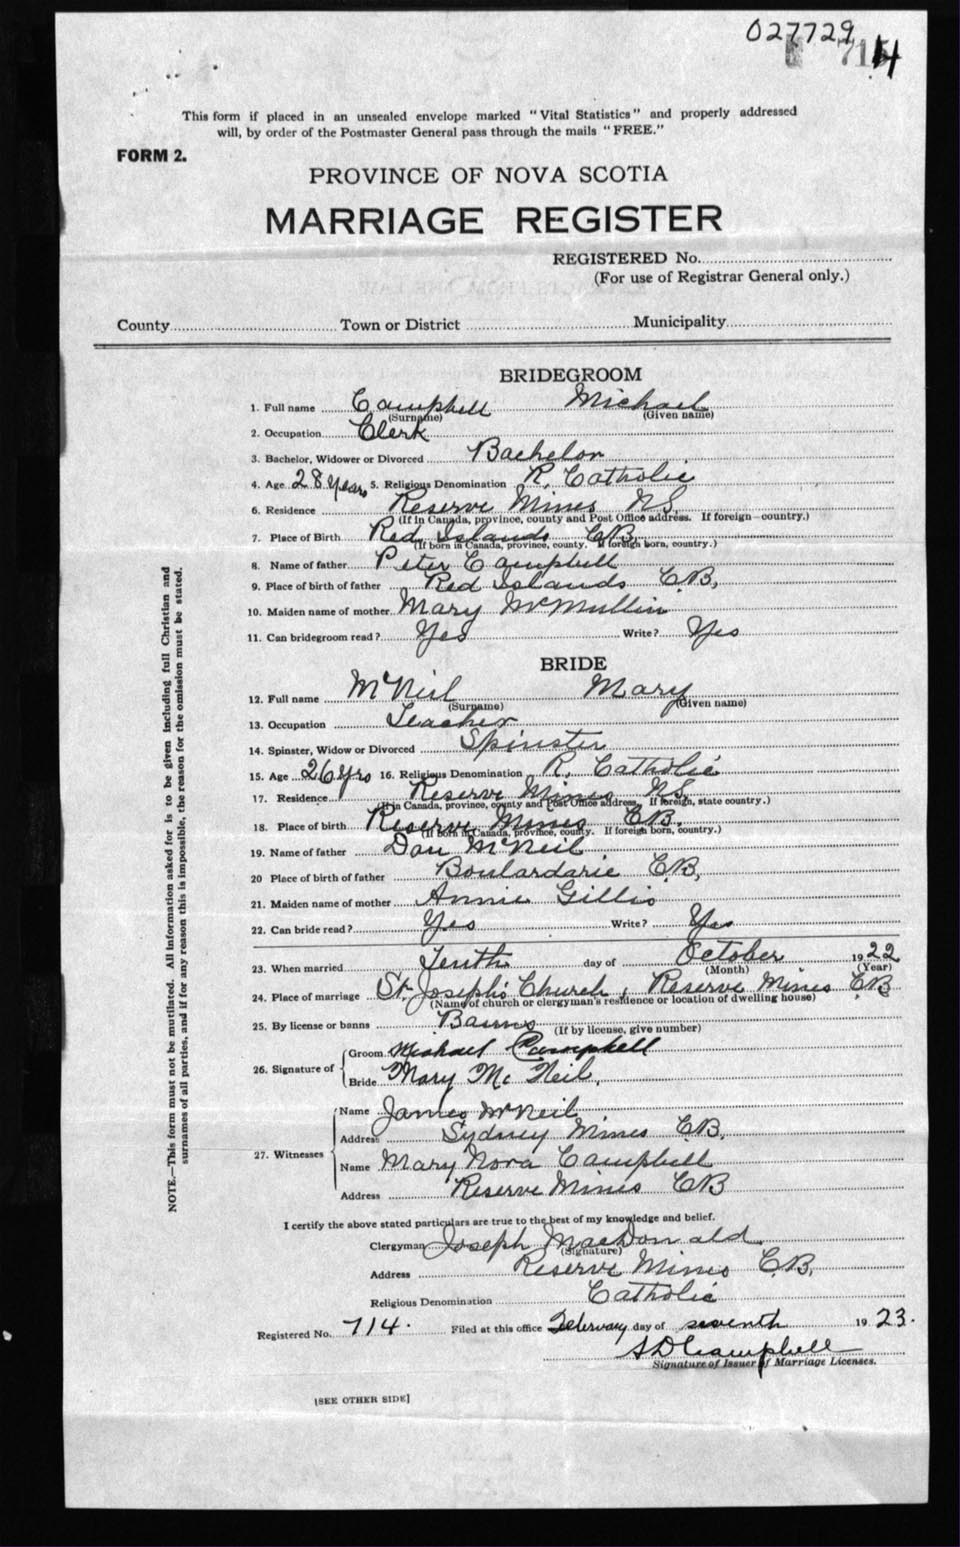 027729
714
This form if placed in an unsealed envelope marked "Vital Statistics" and properly addressed
will, by order of the Postmaster General pass through the mails "FREE."
FORM 2.
PROVINCE OF NOVA SCOTIA
MARRIAGE REGISTER
REGISTERED No.
(For use of Registrar General only.)
County Town or District Municipality
BRIDEGROOM
1. Full name Campbell Michael
(Surname) (Given name)
2. Occupation Clerk
3. Bachelor, Widower or Divorced Bachelor
4. Age 28 years 5. Religious Denomination R. Catholic
6. Residence Reserve Mines NS
(If in Canada, province, county and Post Office address. If foreign—country.)
7. Place of Birth Red Islands CB.
(If born in Canada, province, county. If foreign born, country.)
8. Name of father Peter Campbell
9. Place of birth of father Red Islands C.B,
10. Maiden name of mother Mary McMullin
11. Can bridegroom read? Yes Write? Yes
BRIDE
12. Full name McNeil Mary
(Surname) (Given name)
13. Occupation Teacher
14. Spinster, Widow or Divorced Spinster
15. Age 26 Yrs 16. Religious Denomination R. Catholic
17. Residence Reserve Mines NS.
(If in Canada, province, county and Post Office address. If foreign, state country.)
18. Place of birth Reserve Mines CB.
(If born in Canada, province, county. If foreign born, country.)
19. Name of father Dan McNeil
20 Place of birth of father Boulardarie C.B,
21. Maiden name of mother Annie Gillis
22. Can bride read? Yes Write? Yes
23. When married Tenth day of October 1922
(Month) (Year)
24. Place of marriage St. Joseph's Church, Reserve Mines CB
(Name of church or clergyman's residence or location of dwelling house)
25. By license or banns Banns
(If by license, give number)
26. Signature of
Groom Michael Campbell
Bride Mary Mc Neil.
27. Witnesses
Name James McNeil
Address Sydney Mines C.B.
Name Mary Nora Campbell
Address Reserve Mines CB
I certify the above stated particulars are true to the best of my knowledge and belief.
Clergyman Joseph MacDonald.
(Signature)
Address Reserve Mines C.B.
Religious Denomination Catholic
Registered No. 714. Filed at this office February day of seventh 1923.
Campbell
Signature of Issuer of Marriage Licenses.
[SEE OTHER SIDE]
NOTE.—This form must not be mutilated. All information asked for is to be given including full Christian and
surnames of all parties, and if for any reason this is impossible, the reason for the omission must be stated.